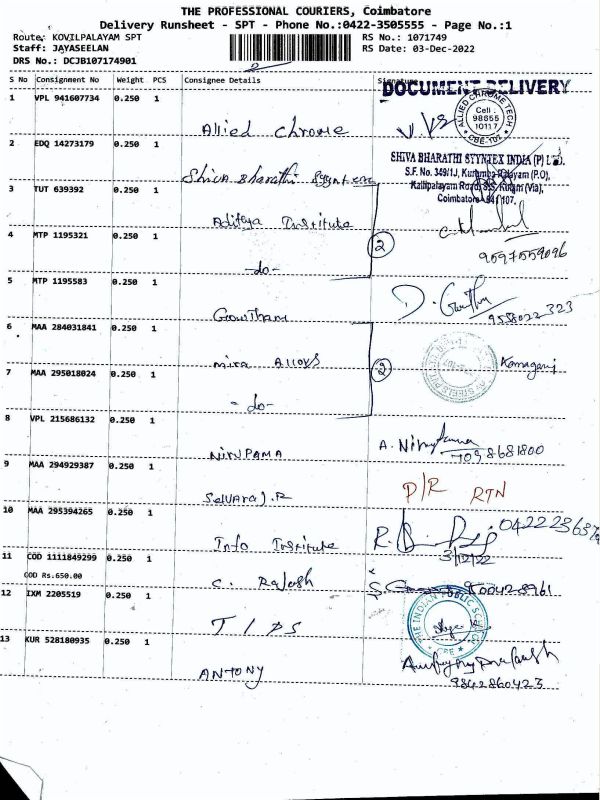 THE PROFESSIONAL COURIERS, Coimbatore
Delivery Runsheet - SPT - Phone No.:0422-3505555 - Page No.:1
Route: KOVILPALAYAM SPT RS No.: 1071749
Staff: JAYASEELAN RS Date: 03-Dec-2022
DRS No.: DCJB107174901
S No Consignment No Weight PCS Consignee Details Signature
DOCUMENT DELIVERY
1 VPL 941607734 0.250 1 Allied Chrome
ALLIED CHROME TECH
Cell :
98655
10117
CBE-107
2 EDQ 14273179 0.250 1 Shiva Bharathi
SHIVA BHARATHI SYNTEX INDIA (P) LTD.
S.F. No. 349/1J, Kurumbapalayam (P.O),
Kalipalayam Road, S.S. Kulam (Via),
Coimbatore - 641 107.
3 TUT 639392 0.250 1 Aditya Institute
4 MTP 1195321 0.250 1 -do- 2 9597559096
5 MTP 1195583 0.250 1 Gowtham D. 9558022323
6 MAA 284031841 0.250 1 Mira Alloys
7 MAA 295018024 0.250 1 -do- 2
8 VPL 215686132 0.250 1 NIRUPAMA A. 7098681800
9 MAA 294929387 0.250 1 Selvaraj.R D/R RTN
10 MAA 295394265 0.250 1 Info Institute 3/12/22
11 COD 1111849299 0.250 1 C. Rajesh
COD Rs.650.00
12 IXM 2205519 0.250 1 T I P S
THE INDIAN PUBLIC SCHOOL
CBE
13 KUR 528180935 0.250 1 ANTONY
9842860423